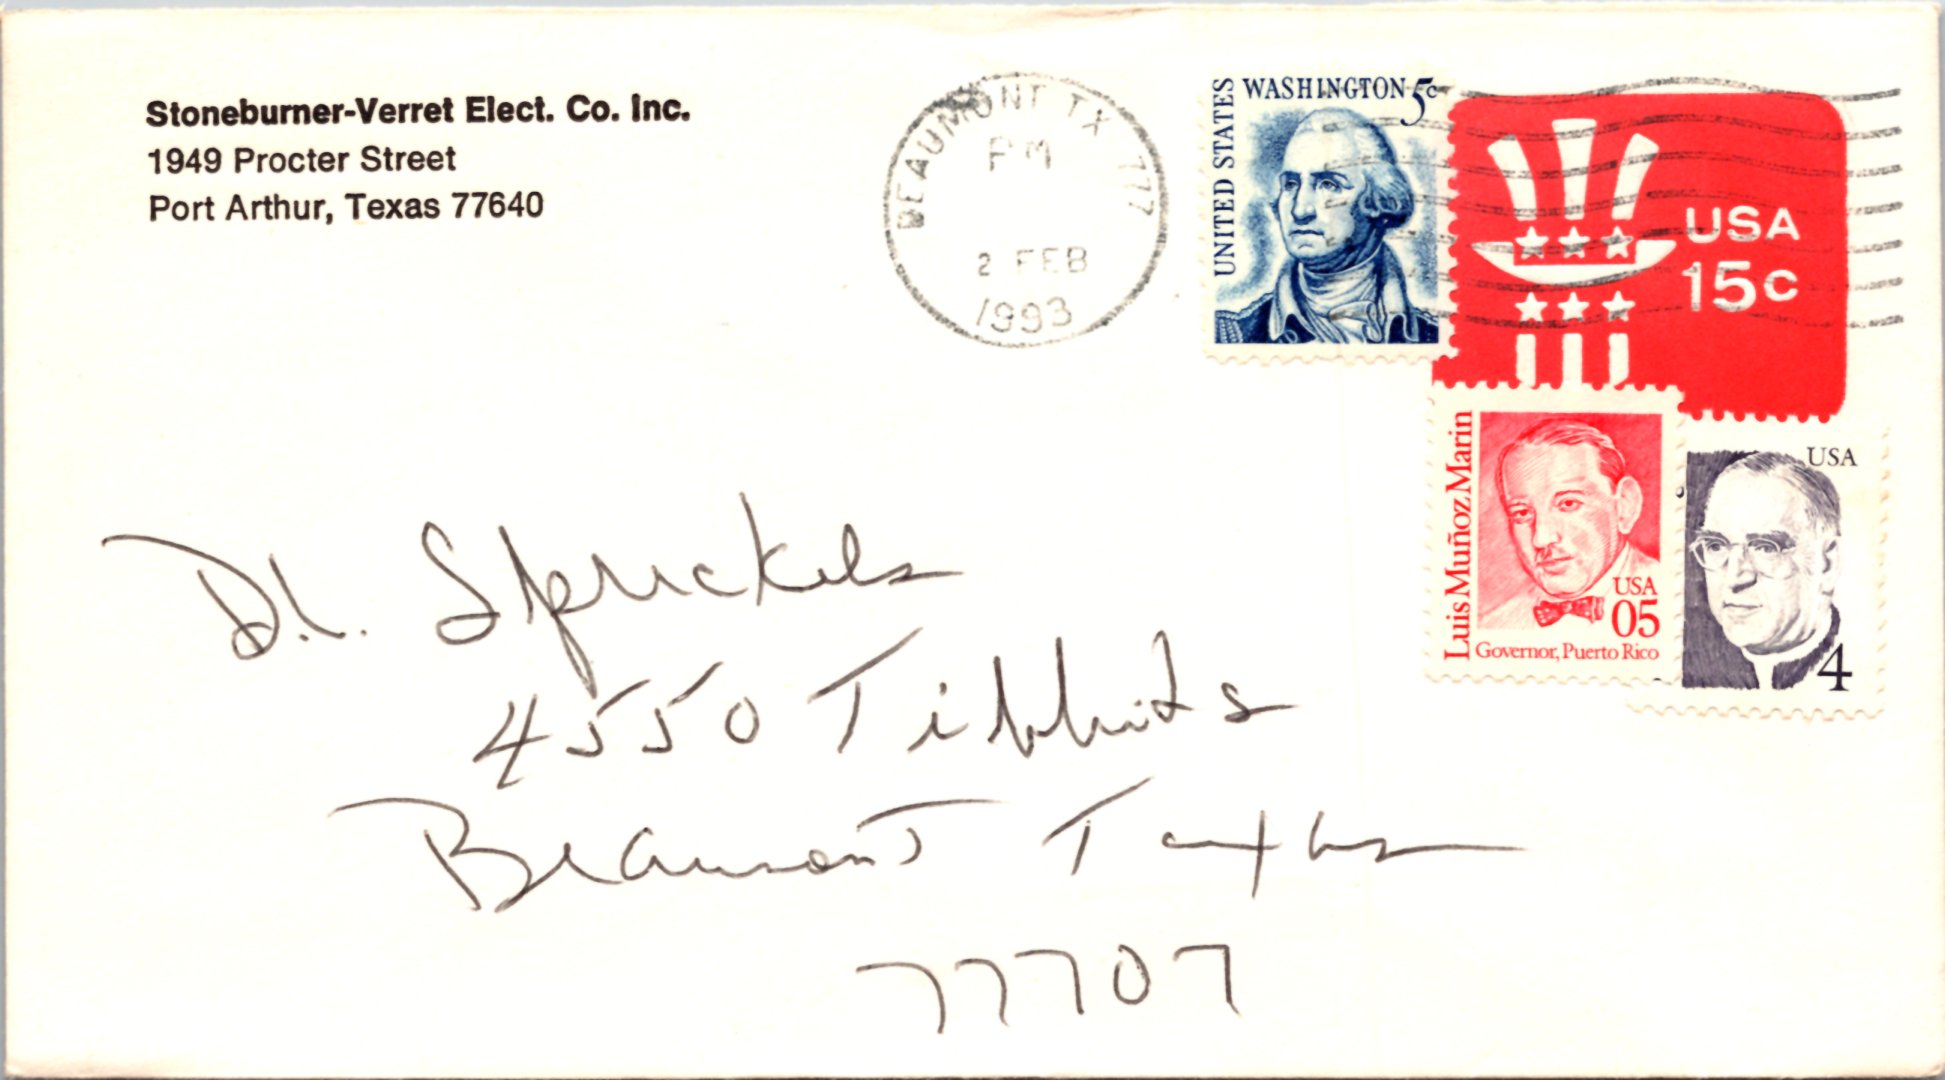 Stoneburner-Verret Elect. Co. Inc.
1949 Procter Street
Port Arthur, Texas 77640
BEAUMONT TX 777
PM
2 FEB
1993
UNITED STATES
WASHINGTON 5c
USA
15c
Luis Muñoz Marin
USA
05
Governor, Puerto Rico
USA
4
Dr. Spruckels
4550 Tibbits
Beaumont Texas
77707